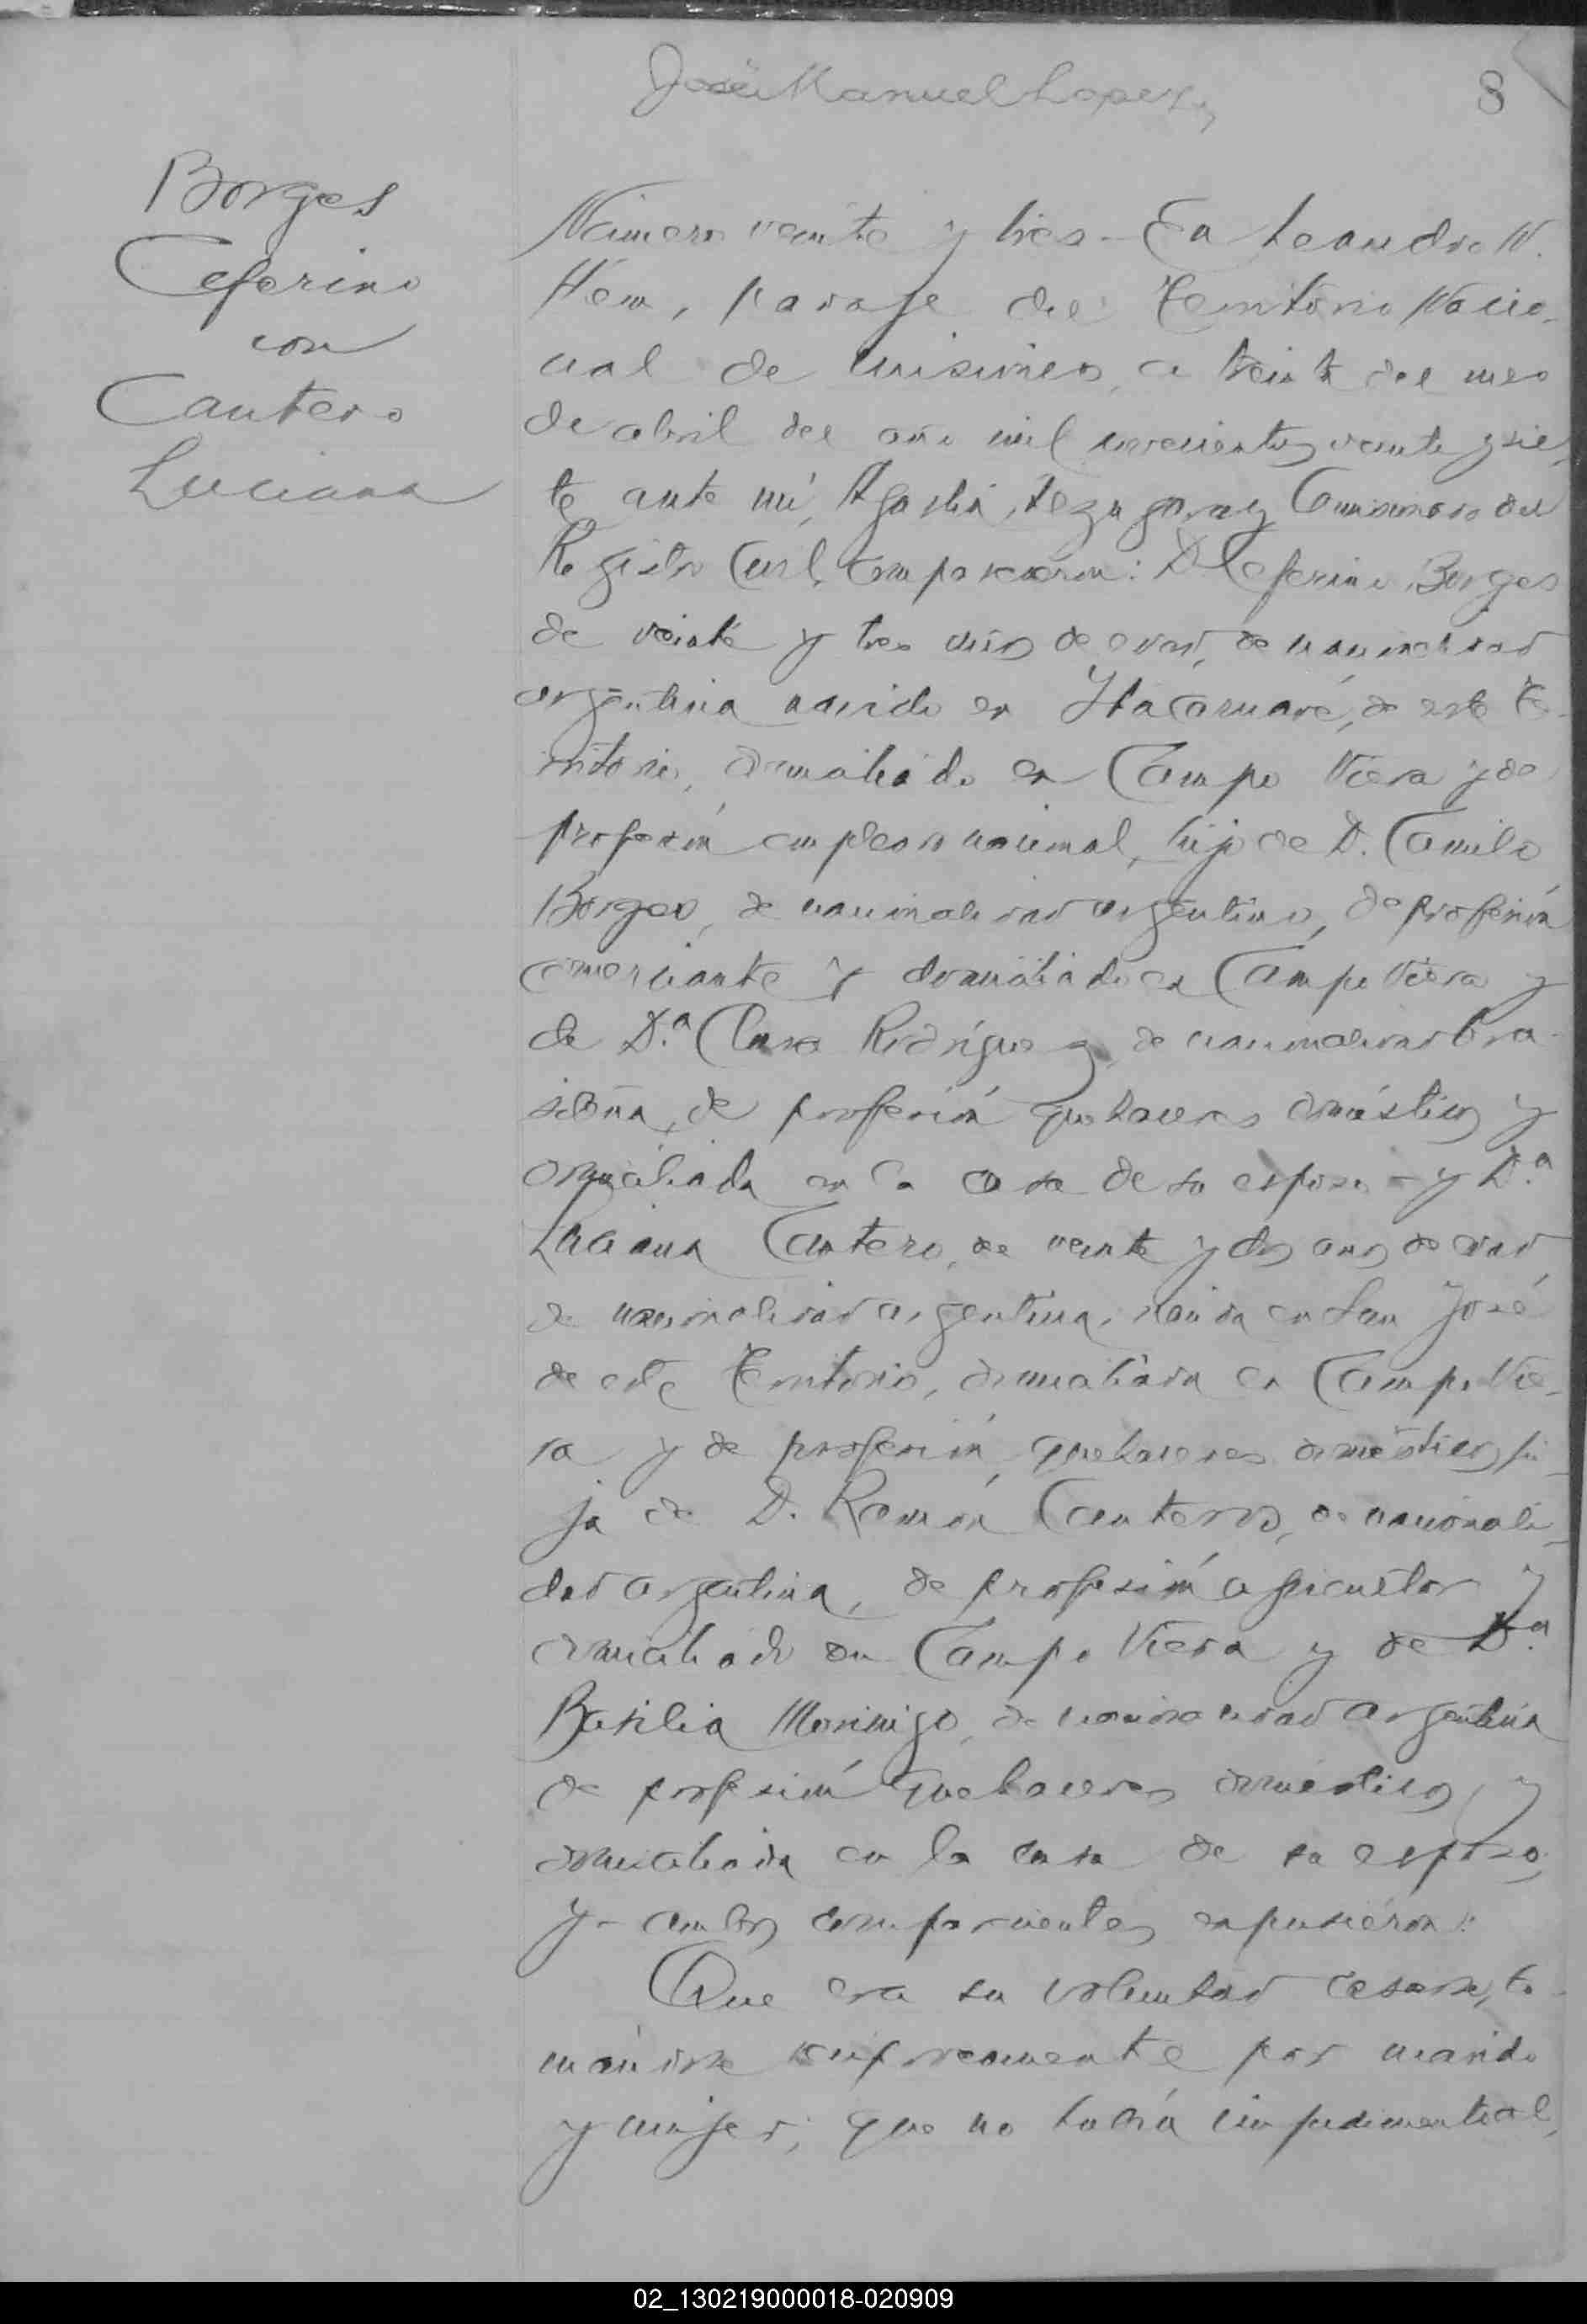 José Manuel Lopez
8
Borges
Ceferino
con
Cantero
Luciana
Número veinte y tres - En Leandro N.
Alem, paraje del Territorio Nacio-
nal de Misiones, a treinta del mes
de abril del año mil novecientos veinte y sie-
te ante mí, Agustin Comisario del
Registro Civil, comparecieron: D. Ceferino Borges
de veinte y tres años de edad, de nacionalidad
argentina nacido en Itacaruaré, de este Te-
rritorio, domiciliado en Campo Viera y de
profesión empleado nacional, hijo de D. Camilo
Borges, de nacionalidad argentino, de profesión
comerciante y domiciliado en Campo Viera y
de D.ª Clara Rodríguez, de nacionalidad bra-
sileña, de profesión quehaceres domésticos y
domiciliada en la casa de su esposo - y D.ª
Luciana Cantero, de veinte y dos años de edad
de nacionalidad argentina, nacida en San José
de este Territorio, domiciliada en Campo Vie-
ra y de profesión quehaceres domésticos, hi-
ja de D. Ramón Cantero, de nacionali-
dad argentina, de profesión agricultor y
domiciliado en Campo Viera y de D.ª
Basilia Morinigo, de nacionalidad argentina
de profesión quehaceres domésticos, y
domiciliada en la casa de su esposo,
y - ambos comparecientes expusieron:
Que era su voluntad casarse, to-
mándose recíprocamente por marido
y mujer; que no había impedimento al,
02_130219000018-020909